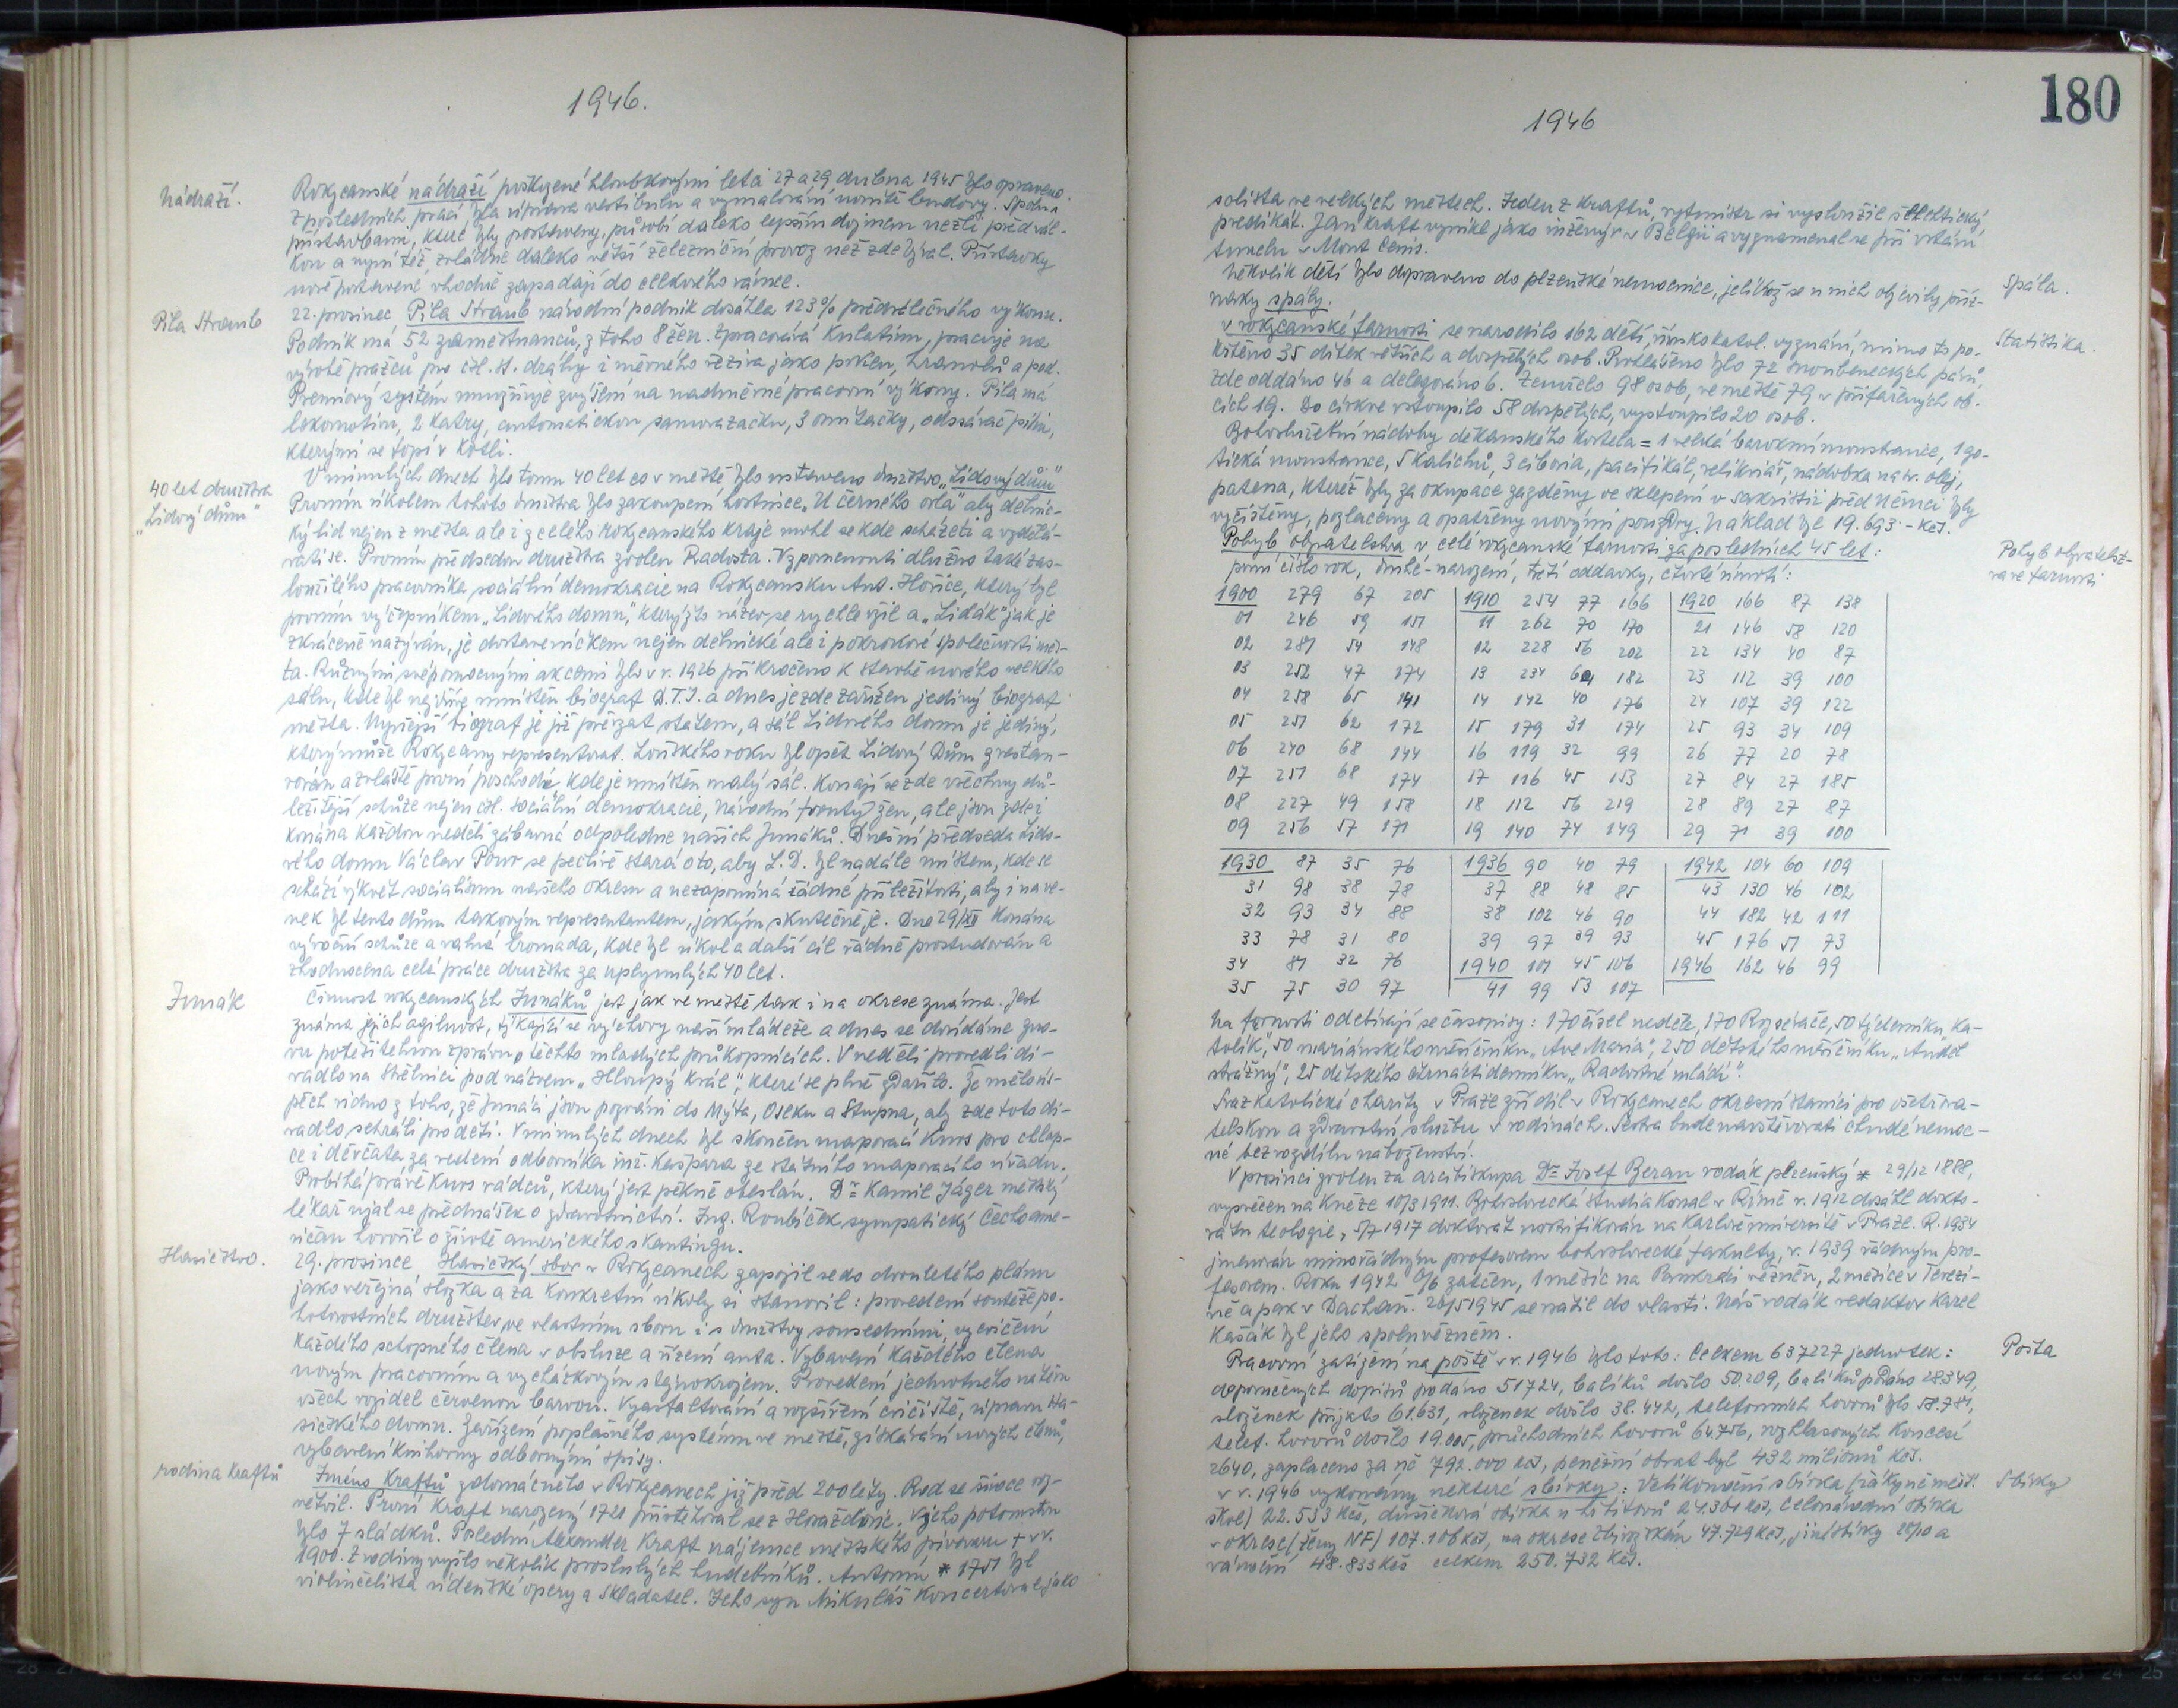 1946.
Nádraží.
Rokycanské nádraží poškozené hloubkovými letci 27 a 29 dubna 1945 bylo opraveno.
Z posledních prací byla úprava vestibulu a vymalování uvnitř budovy. Spolu s
přístavbami, které byly postaveny, působí daleko lepším dojmem nežli před vál-
kou a nyní též zvládne daleko větší železniční provoz než zde býval. Přístavky
nově postavené vhodně zapadají do celkového rámce.
Pila Straub
22. prosinec Pila Straub národní podnik dosáhla 123% předválečného výkonu.
Podnik má 52 zaměstnanců, z toho 8 žen. Zpracovává kulatinu, pracuje na
výrobě pražců pro čsl. st. dráhy i měrného řeziva jako prken, hranolů a pod.
Premiový systém umožňuje zvýšení na nadměrné pracovní výkony. Pila má
lokomotivu, 2 katry, automatickou samovazačku, 3 omítačky, odssávač pilin,
kterými se topí v kotli.
40 let družstva
„Lidový dům"
V minulých dnech bylo tomu 40 let co v městě bylo ustaveno družstvo „Lidový dům"
Prvním úkolem tohoto družstva bylo zakoupení hostince „U černého orla" aby dělnic-
ký lid nejen z města ale i z celého rokycanského kraje mohl se kde scházeti a vzdělá-
vati se. Prvním předsedou družstva zvolen Radosta. Vzpomenouti dlužno také zas-
loužilého pracovníka sociální demokracie na Rokycansku Ant. Hořice, který byl
prvním výčepníkem „Lidového domu", kterýžto název se rychle vžil a „Lidák" jak je
zkráceně nazýván, je dostaveníčkem nejen dělnické ale i pokrokové společnosti měs-
ta. Různými svépomocnými akcemi bylo v r. 1926 přikročeno k stavbě nového velkého
sálu, kde byl nejdříve umístěn biograf D.T.J. a dnes je zde zařízen jediný biograf
města. Nynější biograf je již převzat státem, a sál Lidového domu je jediný,
který může Rokycany representovat. Loňského roku byl opět Lidový Dům zrestau-
rován a zvláště první poschodí kde je umístěn malý sál. Konají se zde všechny dů-
ležitější schůze nejen čsl. sociální demokracie, Národní fronty žen, ale jsou zde i
konána každou neděli zábavné odpoledne našich Junáků. Dnešní předseda Lido-
vého domu Václav Pour se pečlivě stará o to, aby L.D. byl nadále místem, kde se
schází výkvět socialismu našeho okresu a nezapomíná žádné příležitosti, aby i na ve-
nek byl tento dům takovým representantem, jakým skutečně je. Dne 29/XII konána
výroční schůze a valná hromada, kde byl úkol a další cíl řádně prostudován a
zhodnocena celá práce družstva za uplynulých 40 let.
Junák
Činnost rokycanských Junáků jest jak ve městě tak i na okrese známa. Jest
známa jejich agilnost, týkající se výchovy naší mládeže a dnes se dovídáme zno-
vu potěšitelnou zprávu o těchto mladých průkopnících. V neděli provedli di-
vadlo na Střelnici pod názvem „Hloupý král", které se plně zdařilo. Že mělo ús-
pěch vidno z toho, že Junáci jsou pozváni do Mýta, Oseku a Stupna, aby zde toto di-
vadlo sehráli pro děti. V minulých dnech byl skončen mapovací kurs pro chlap-
ce i děvčata za vedení odborníka inž. Kašpara ze státního mapovacího úřadu.
Probíhá právě kurs vádců, který jest pěkně obeslán. Dr Kamil Jäger městský
lékař ujal se přednášek o zdravotnictví. Ing. Roubíček sympatický Čechoame-
ričan hovořil o životě amerického skautingu.
Hasičstvo.
29. prosince Hasičský sbor v Rokycanech zapojil se do dvouletého plánu
jako veřejná složka a za konkretní úkoly si stanovil: provedení soutěže po-
hotovostních družstev ve vlastním sboru i s družstvy sousedními, vycvičení
každého schopného člena v obsluze a řízení auta. Vybavení každého člena
novým pracovním a vycházkovým stejnokrojem. Provedení jednotného nátěru
všech vozidel červenou barvou. Vyasfaltování a rozšíření cvičiště, úpravu Ha-
sičského domu. Zařízení poplašného systému ve městě, získávání nových členů,
vybavení knihovny odbornými spisy.
rodina Kraftů
Jméno Kraftů zdomácnělo v Rokycanech již před 200 lety. Rod se široce roz-
větvil. První Kraft narozený 1721 přistěhoval se z Horažďovic. Z jeho potomstva
bylo 7 sládků. Poslední Alexander Kraft nájemce městského pivovaru † v r.
1900. Z rodiny vyšlo několik proslulých hudebníků. Antonín * 1751 byl
violinčelista vídeňské opery a skladatel. Jeho syn Mikuláš koncertoval jako
180
1946
solista ve velkých městech. Jeden z Kraftů, rytmistr si vysloužil šlechtický
predikát. Jan Kraft vynikl jako inženýr v Belgii a vyznamenal se při vrtání
tunelu v Mont Cenis.
Spála.
Několik dětí bylo dopraveno do plzeňské nemocnice, jelikož se u nich objevily příz-
naky spály.
Statistika.
V rokycanské farnosti se narodilo 162 dětí, římskokatol. vyznání, mimo to po-
křtěno 35 dítek větších a dospělých osob. Prohlášeno bylo 72 snoubeneckých párů,
zde oddáno 46 a delegováno 6. Zemřelo 98 osob, ve městě 79 v přifařených ob-
cích 19. Do církve vstoupilo 58 dospělých, vystoupilo 20 osob.
Bohoslužební nádoby děkanského kostela = 1 velká barokní monstrance, 1 go-
tická monstrance, 5 kalichů, 3 ciboria, pacifikál, relikviář, nádobka na sv. olej,
patena, kteréž byly za okupace zazděny ve sklepení v sakristii před Němci byly
vyčištěny, pozlaceny a opatřeny novými pouzdry. Náklad byl 19.693.- Kčs.
Pohyb obyvatelst-
va ve farnosti
Pohyb obyvatelstva v celé rokycanské farnosti za posledních 45 let:
první číslo rok, druhé - narození, třetí oddavky, čtvrté úmrtí:
1900 279 67 205 1910 254 77 166 1920 166 87 138
01 246 59 151 11 262 70 170 21 146 58 120
02 281 54 148 12 228 56 202 22 134 40 87
03 252 47 174 13 234 64 182 23 112 39 100
04 258 65 141 14 142 40 176 24 107 39 122
05 251 62 172 15 179 31 174 25 93 34 109
06 240 68 144 16 119 32 99 26 77 20 78
07 251 68 174 17 116 45 153 27 84 27 185
08 227 49 158 18 112 56 219 28 89 27 87
09 256 57 171 19 140 74 149 29 71 39 100
1930 87 35 76 1936 90 40 79 1942 104 60 109
31 98 38 78 37 88 48 85 43 130 46 102
32 93 34 88 38 102 46 90 44 182 42 111
33 78 31 80 39 97 39 93 45 176 51 73
34 81 32 76 1940 101 45 106 1946 162 46 99
35 75 30 97 41 99 53 107
Na farnosti odebírají se časopisy: 170 čísel neděle, 170 Rozsévače, 50 týdenníku Ka-
tolík", 50 mariánského měsíčníku „Ave Maria", 250 dětského měsíčníku „Anděl
strážný", 25 dětského čtrnáctidenníku „Radostné mládí".
Svaz katolické charity v Praze zřídil v Rokycanech okresní stanici pro ošetřova-
telskou a zdravotní službu v rodinách. Sestra bude navštěvovati chudé nemoc-
né bez rozdílu náboženství.
V prosinci zvolen za arcibiskupa Dr Josef Beran rodák plzeňský * 29/12 1888,
vysvěcen na kněze 10/3 1911. Bohoslovecká studia konal v Římě r. 1912 dosáhl dokto-
rátu teologie, 5/7 1917 doktorát nostrifikován na Karlově universitě v Praze. R. 1934
jmenován mimořádným profesorem bohoslovecké fakulty, r. 1939 řádným pro-
fesorem. Roku 1942 6/6 zatčen, 1 měsíc na Pankráci vězněn, 2 měsíce v Terezí-
ně a pak v Dachau. 20/5 1945 se vrátil do vlasti. Náš rodák redaktor Karel
Kašák byl jeho spoluvězněm.
Pošta
Pracovní zatížení na poště v r. 1946 bylo toto: Celkem 637227 jednotek:
doporučených dopisů podáno 51724, balíků došlo 50.209, balíků podáno 28.349,
složenek přijato 61.631, složenek došlo 38.442, telefonních hovorů bylo 58.781,
telef. hovorů došlo 19.005, průchodních hovorů 64.756, rozhlasových koncesí
2640, zaplaceno za ně 792.000 Kčs, peněžní obrat byl 432 milionů Kčs.
Sbírky
V r. 1946 vykonány některé sbírky: Velikonoční sbírka (žákyně měšť.
škol) 22.553 Kčs, dušičková sbírka u hřbitovů 24.301 Kčs, celonárodní sbírka
v okrese (ženy NF) 107.106 Kčs, na okrese 47.729 Kčs, jiné sbírky 28/10 a
vánoční 48.833 Kčs celkem 250.732 Kčs.